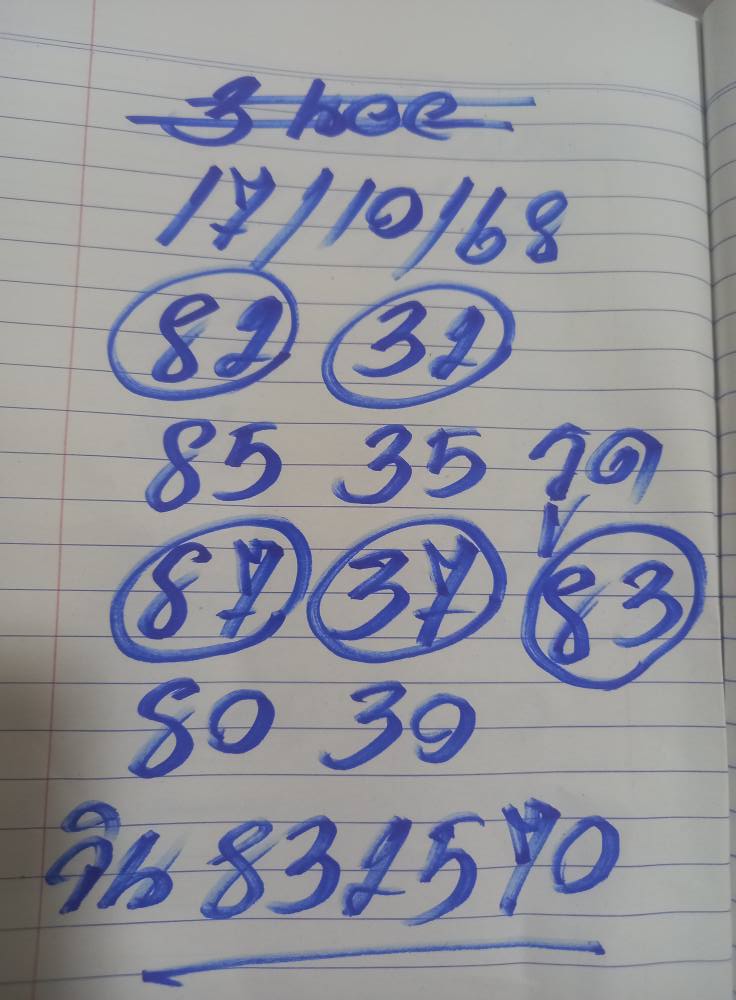 3
17/10/68
82 32
85 35 รูด
87 37 83
80 30
วิน 832570